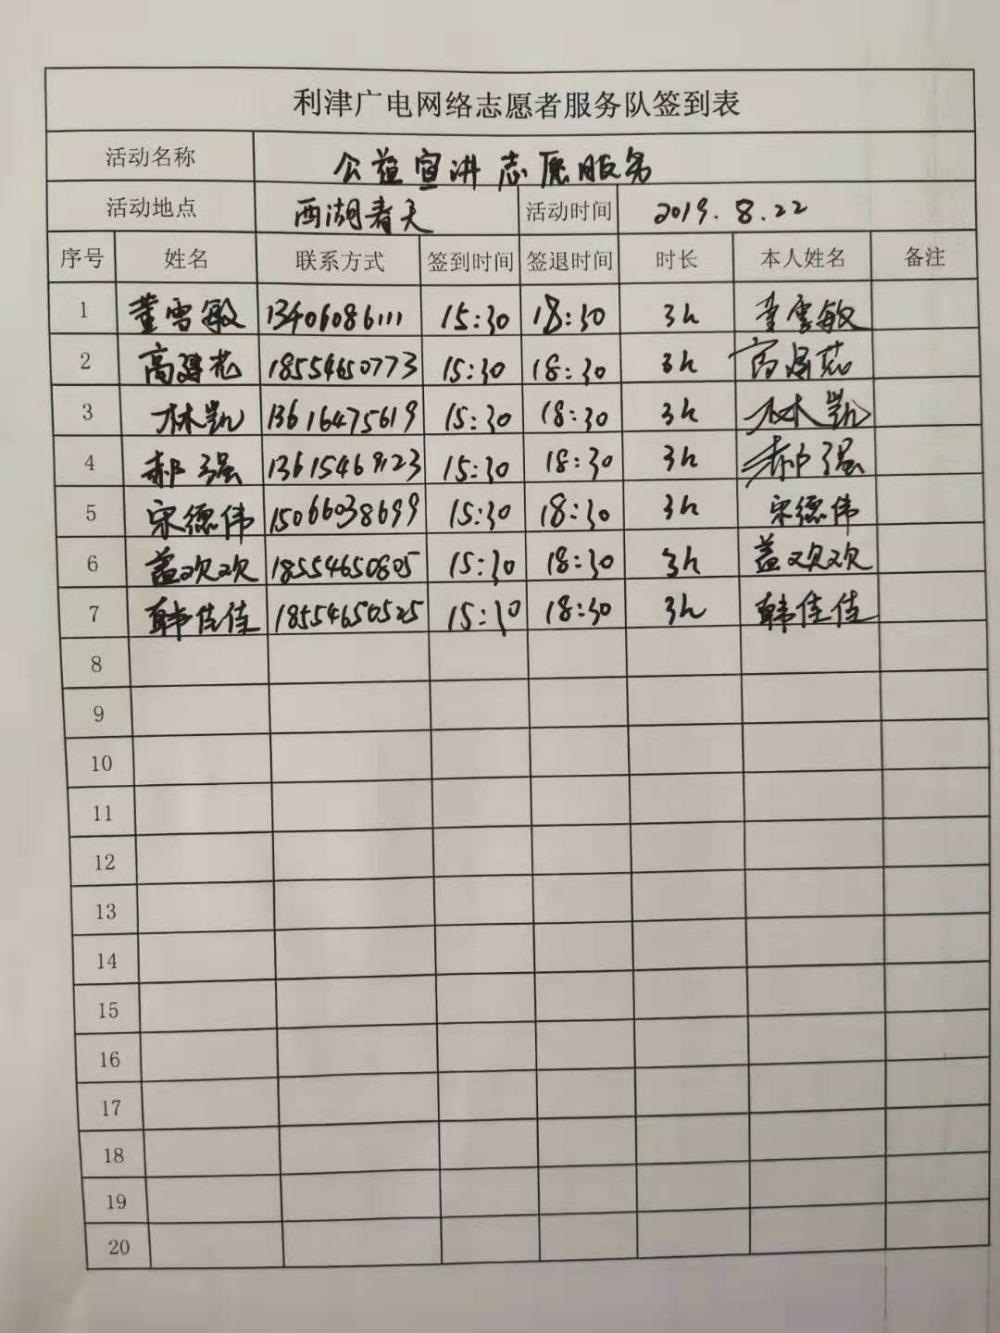 利津广电网络志愿者服务队签到表
活动名称 公益宣讲志愿服务
活动地点 西湖春天 活动时间 2019.8.22
序号 姓名 联系方式 签到时间 签退时间 时长 本人姓名 备注
1 董雪敏 13406086111 15:30 18:30 3h 董雪敏
2 18554650773 15:30 18:30 3h
3 林凯 13616475619 15:30 18:30 3h 林凯
4 郝强 15:30 18:30 3h 郝强
5 宋德伟 15066038699 15:30 18:30 3h 宋德伟
6 盖欢欢 18554650805 15:30 18:30 3h 盖欢欢
7 韩佳佳 18554650525 15:30 18:30 3h 韩佳佳
8
9
10
11
12
13
14
15
16
17
18
19
20